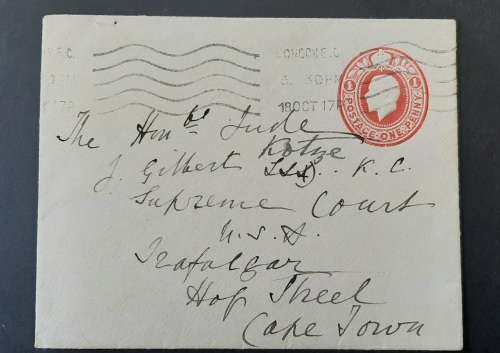 LONDON E.C.
3.30PM
18 OCT 17
POSTAGE ONE PENNY
1 1
The Hon ble Jude
Kotze
J. Gilbert K. C.
Supreme Court
U. S. A.
Trafalgar
Hof Street
Cape Town